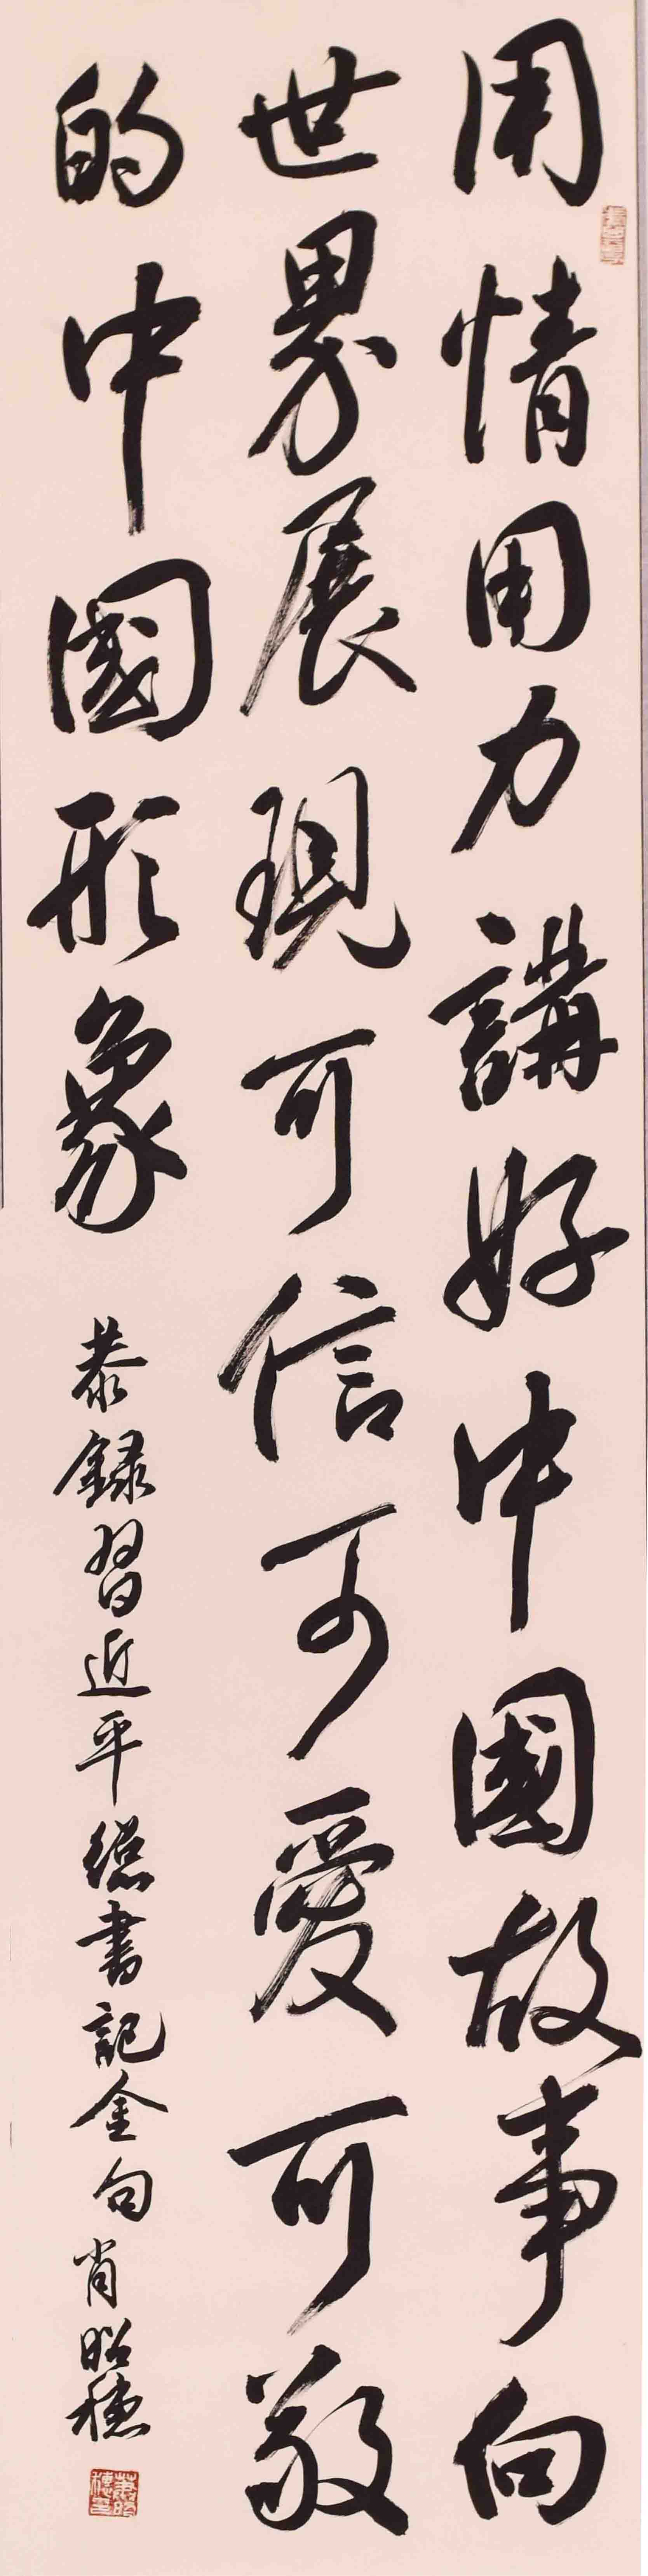 用情用力講好中國故事向
世界展現可信可愛可敬
的中國形象
恭録習近平總書記金句肖昭穗